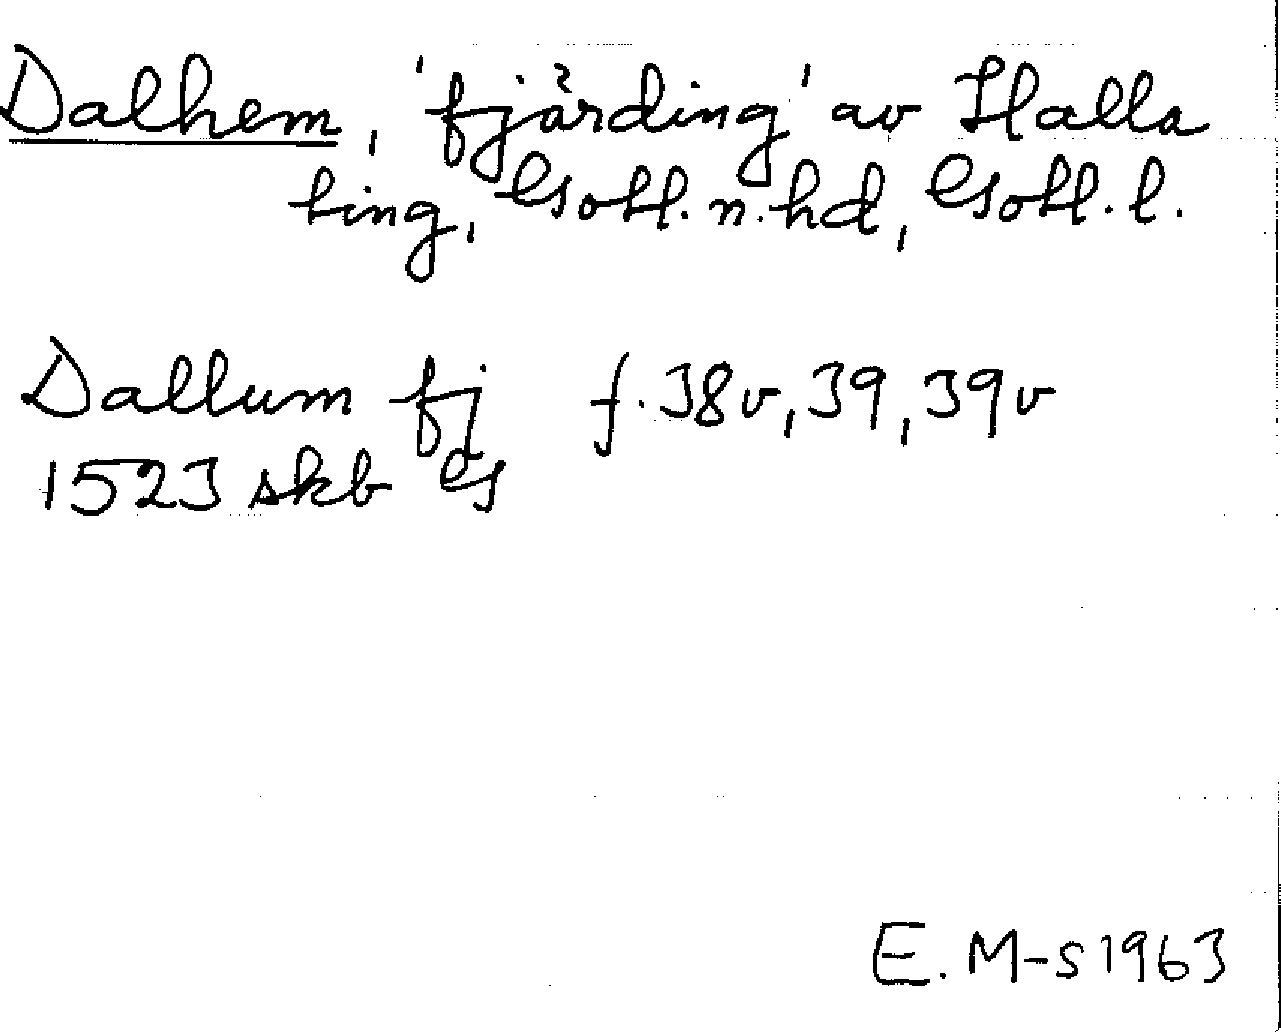 Dalhem, 'fjärding' av Halla
ting, Gotl. n. hd, Gotl. l.
Dallum fj f. 38v, 39, 39v
1523 skb G
E. M-s 1963